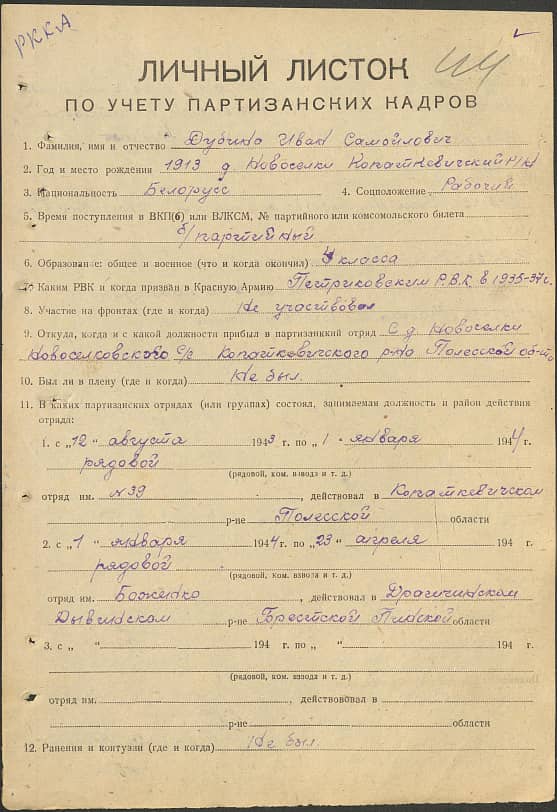 РККА
44
ЛИЧНЫЙ ЛИСТОК
ПО УЧЕТУ ПАРТИЗАНСКИХ КАДРОВ
1. Фамилия, имя и отчество Дубина Иван Самойлович
2. Год и место рождения 1913 д Новоселки Копаткевичский р/н
3. Национальность Белорусс 4. Соцположение Рабочий
5. Время поступления в ВКП(б) или ВЛКСМ, № партийного или комсомольского билета
б/партийный
6. Образование общее и военное (что и когда окончил) 4 класса
7. Каким РВК и когда призван в Красную Армию Петриковским Р.В.К. в 1935-37г.
8. Участие на фронтах (где и когда) Не участвовал
9. Откуда, когда и с какой должности прибыл в партизанский отряд С д. Новоселки
Новоселковского С/с Копаткевичского р-на Полесской об-ти
10. Был ли в плену (где и когда) Не был.
11. В каких партизанских отрядах (или группах) состоял, занимаемая должность и район действия
отряда:
1. с „12 " августа 1943 г. по „1 " января 1944 г.
рядовой
(рядовой, ком. взвода и т. д.)
отряд им. №39 , действовал в Копаткевичском
р-не Полесской области
2. с „1 " января 1944 г. по „23 " апреля 194 г.
рядовой
(рядовой, ком. взвода и т. д.)
отряд им. Боженко , действовал в Драгичинском
Дывинском р-не Брестской Пинской области
3. с „ " 194 г. по „ " 194 г.
(рядовой, ком. взвода и т. д.)
отряд им. , действовал в
р-не области
12. Ранения и контузии (где и когда) Не был.